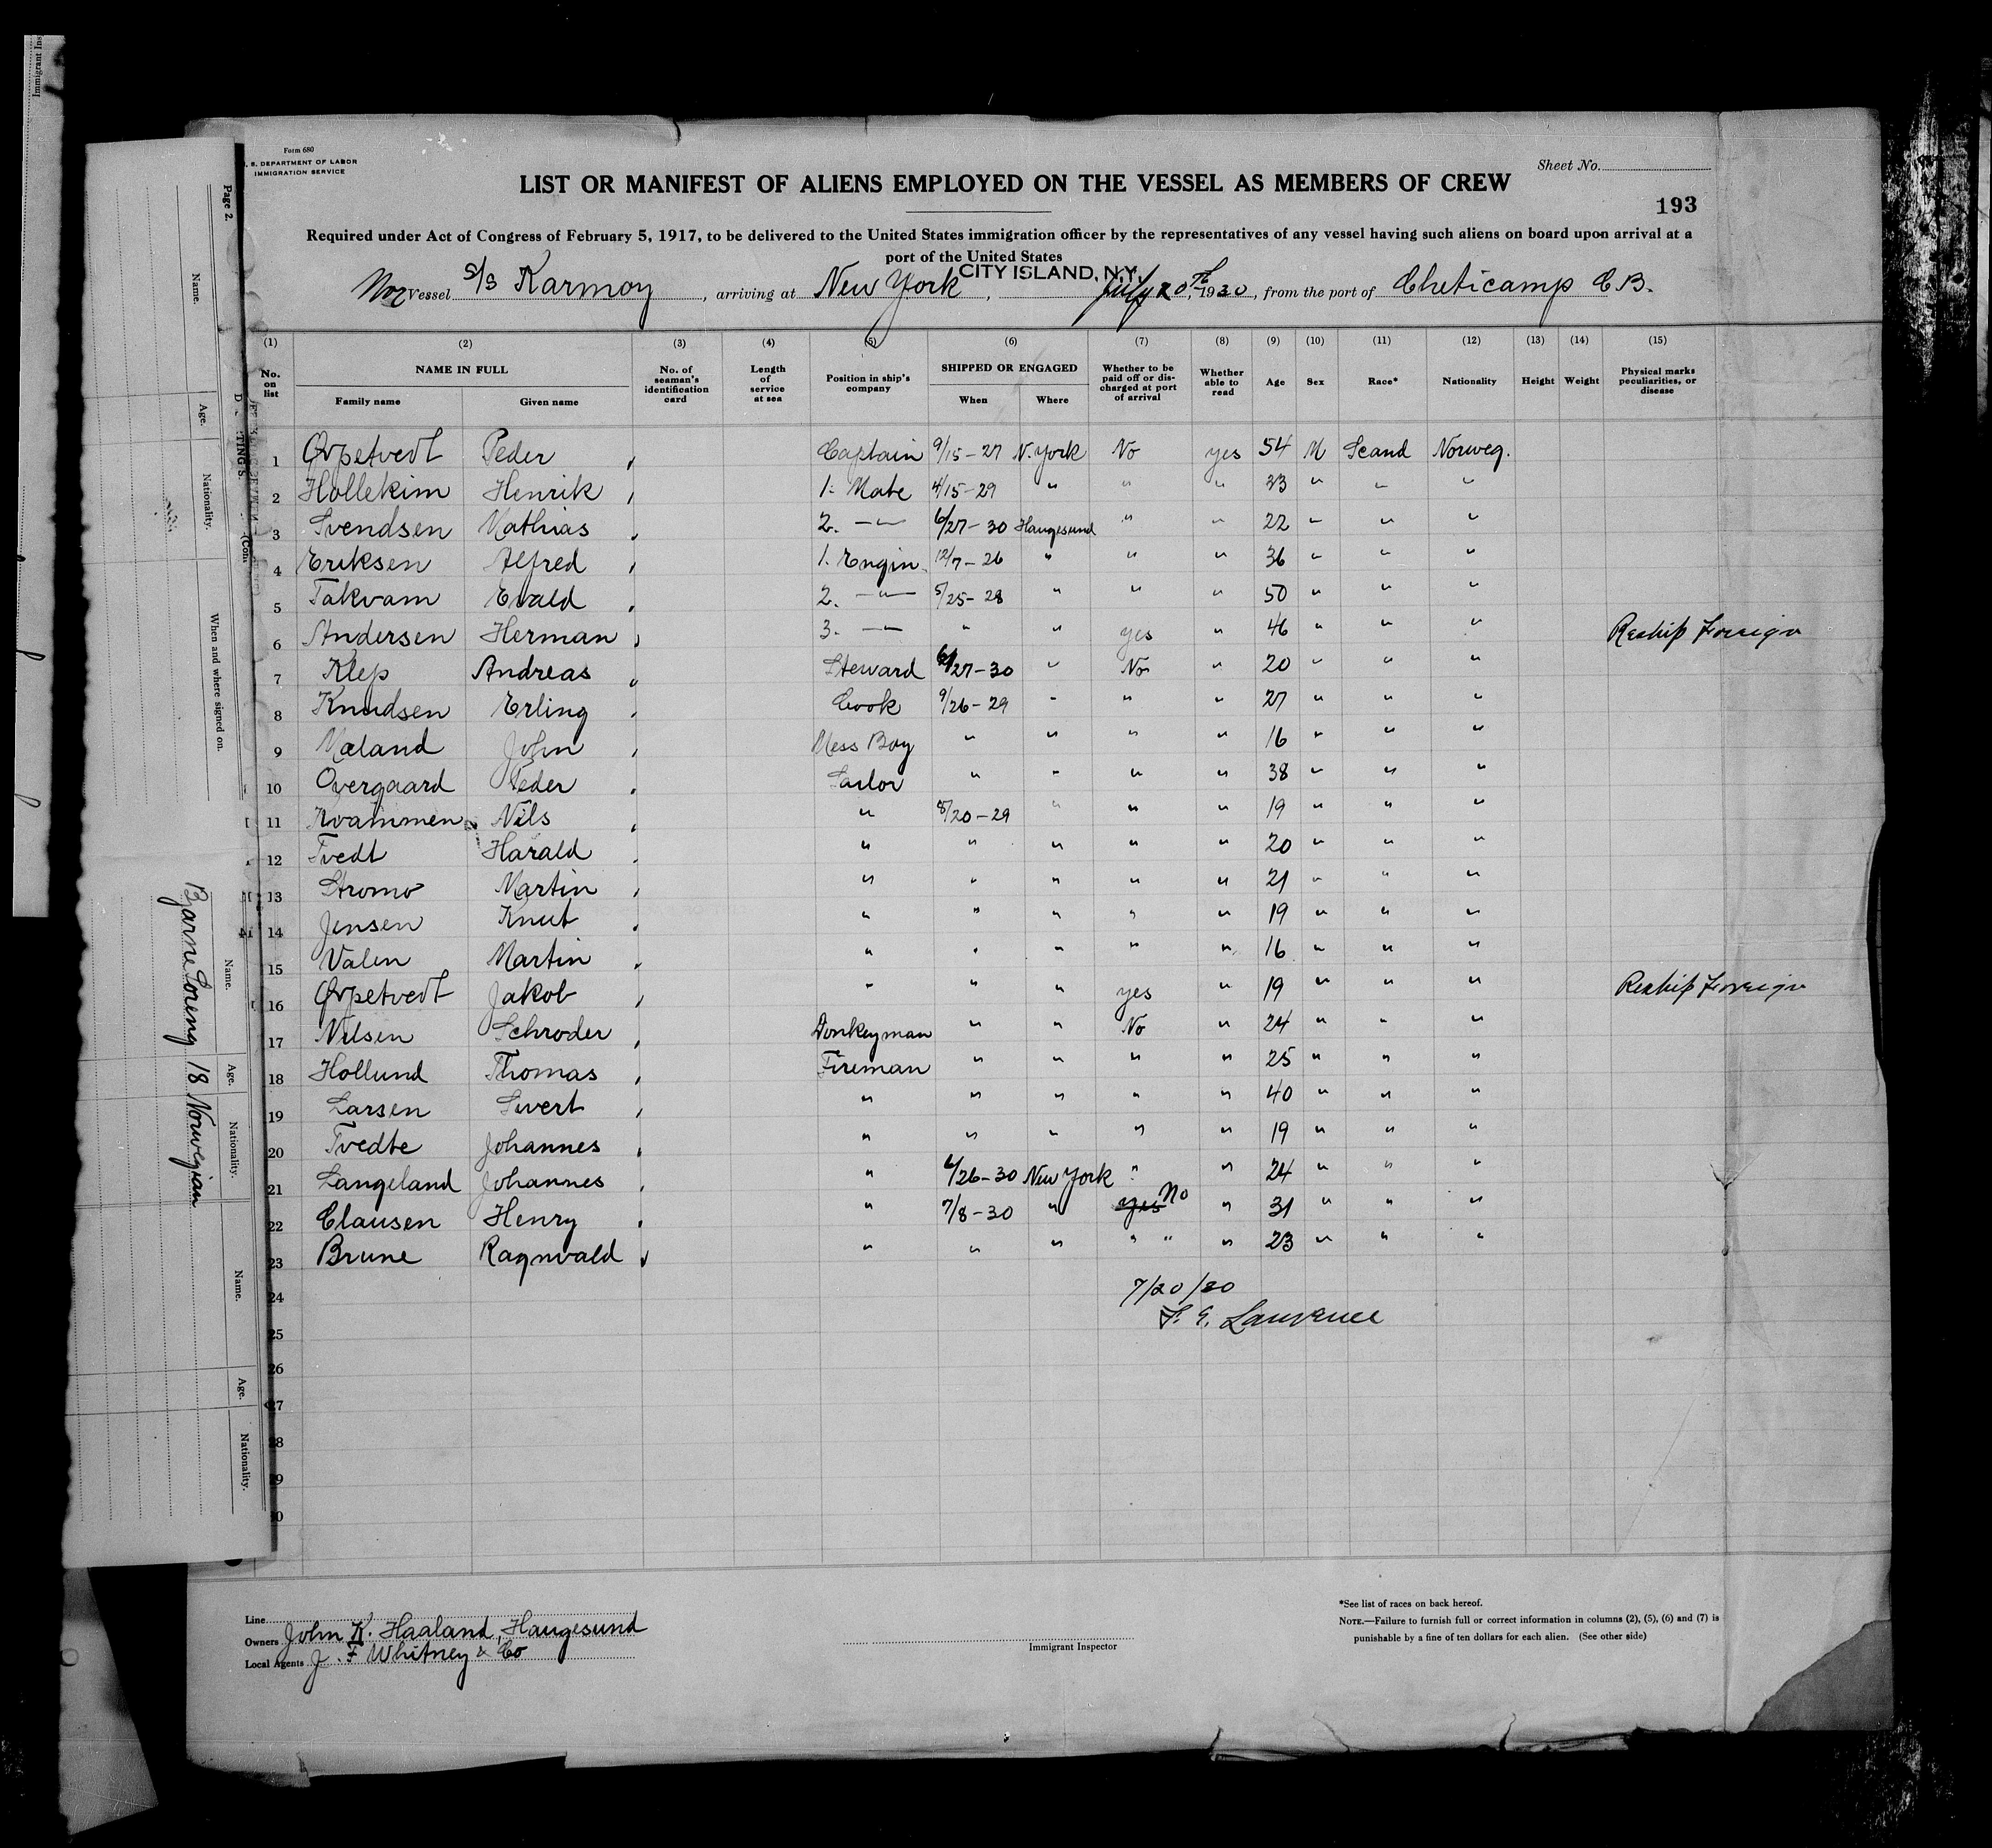 Form 680
U. S. DEPARTMENT OF LABOR
IMMIGRATION SERVICE
Sheet No.
LIST OR MANIFEST OF ALIENS EMPLOYED ON THE VESSEL AS MEMBERS OF CREW
193
Required under Act of Congress of February 5, 1917, to be delivered to the United States immigration officer by the representatives of any vessel having such aliens on board upon arrival at a
port of the United States
CITY ISLAND, N.Y.
Nor Vessel S/S Karmoy, arriving at New York, July 20th, 1930, from the port of Cheticamp C.B.
(1) (2) (3) (4) (5) (6) (7) (8) (9) (10) (11) (12) (13) (14) (15)
No. on list NAME IN FULL Family name Given name No. of seaman's identification card Length of service at sea Position in ship's company SHIPPED OR ENGAGED When Where Whether to be paid off or discharged at port of arrival Whether able to read Age Sex Race* Nationality Height Weight Physical marks peculiarities, or disease
1 Qvpetvedt Peder Captain 9/15-27 N.York No yes 54 M Scand Norweg.
2 Hollekim Henrik 1. Mate 4/15-29 " " " 33 " " "
3 Svendsen Mathias 2. —"— 6/27-30 Haugesund " " 22 " " "
4 Eriksen Alfred 1. Engin. 12/7-26 " " " 36 " " "
5 Takvam Evald 2. —"— 5/25-28 " " " 50 " " "
6 Andersen Herman 3. —"— " " yes " 46 " " " Reship Foreign
7 Klep Andreas Steward 6/27-30 " No " 20 " " "
8 Knudsen Erling Cook 9/26-29 " " " 27 " " "
9 Mæland John Mess Boy " " " " 16 " " "
10 Overgaard Peder Sailor " " " " 38 " " "
11 Kvammen Nils " 8/20-29 " " " 19 " " "
12 Tvedt Harald " " " " " 20 " " "
13 Stromo Martin " " " " " 21 " " "
14 Jensen Knut " " " " " 19 " " "
15 Valen Martin " " " " " 16 " " "
16 Qvpetvedt Jakob " " " yes " 19 " " " Reship Foreign
17 Nilsen Schroder Donkeyman " " No " 24 " " "
18 Hollund Thomas Fireman " " " " 25 " " "
19 Larsen Sivert " " " " " 40 " " "
20 Tvedte Johannes " " " " " 19 " " "
21 Langeland Johannes " 6/26-30 New York " " 24 " " "
22 Clausen Henry " 7/8-30 " yes No " 31 " " "
23 Brune Ragnvald " " " " " " 23 " " "
24 7/20/30
25 F. E. Lawrence
26
27
28
29
30
Line
Owners John K. Haaland, Haugesund
Local Agents J. F Whitney & Co
Immigrant Inspector
*See list of races on back hereof.
NOTE.—Failure to furnish full or correct information in columns (2), (5), (6) and (7) is
punishable by a fine of ten dollars for each alien. (See other side)
Page 2.
Name.
Age.
Nationality.
When and where signed on.
Name.
Age.
Nationality.
Bjarne Soreng 18 Norwegian
Name.
Age.
Nationality.
Immigrant Ins